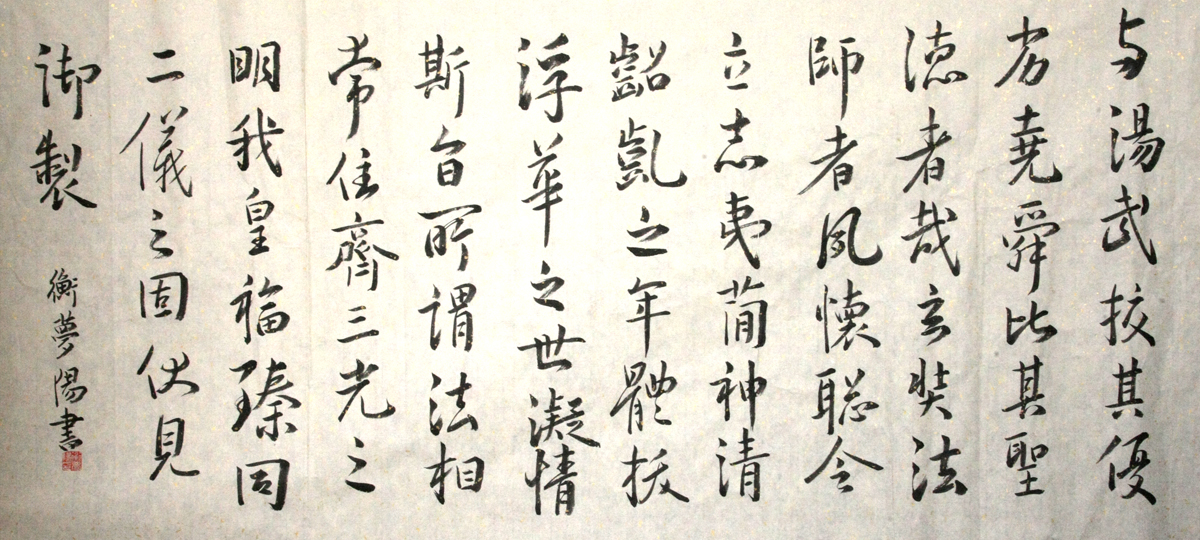 与湯武挍其優
劣堯舜比其聖
徳者哉玄奘法
師者夙懷聡令
立志夷蕳神清
齠齓之年體拔
浮華之世凝情
斯旨所謂法相
常住齊三光之
明我皇福臻同
二儀之固伏見
御製
衡夢陽書